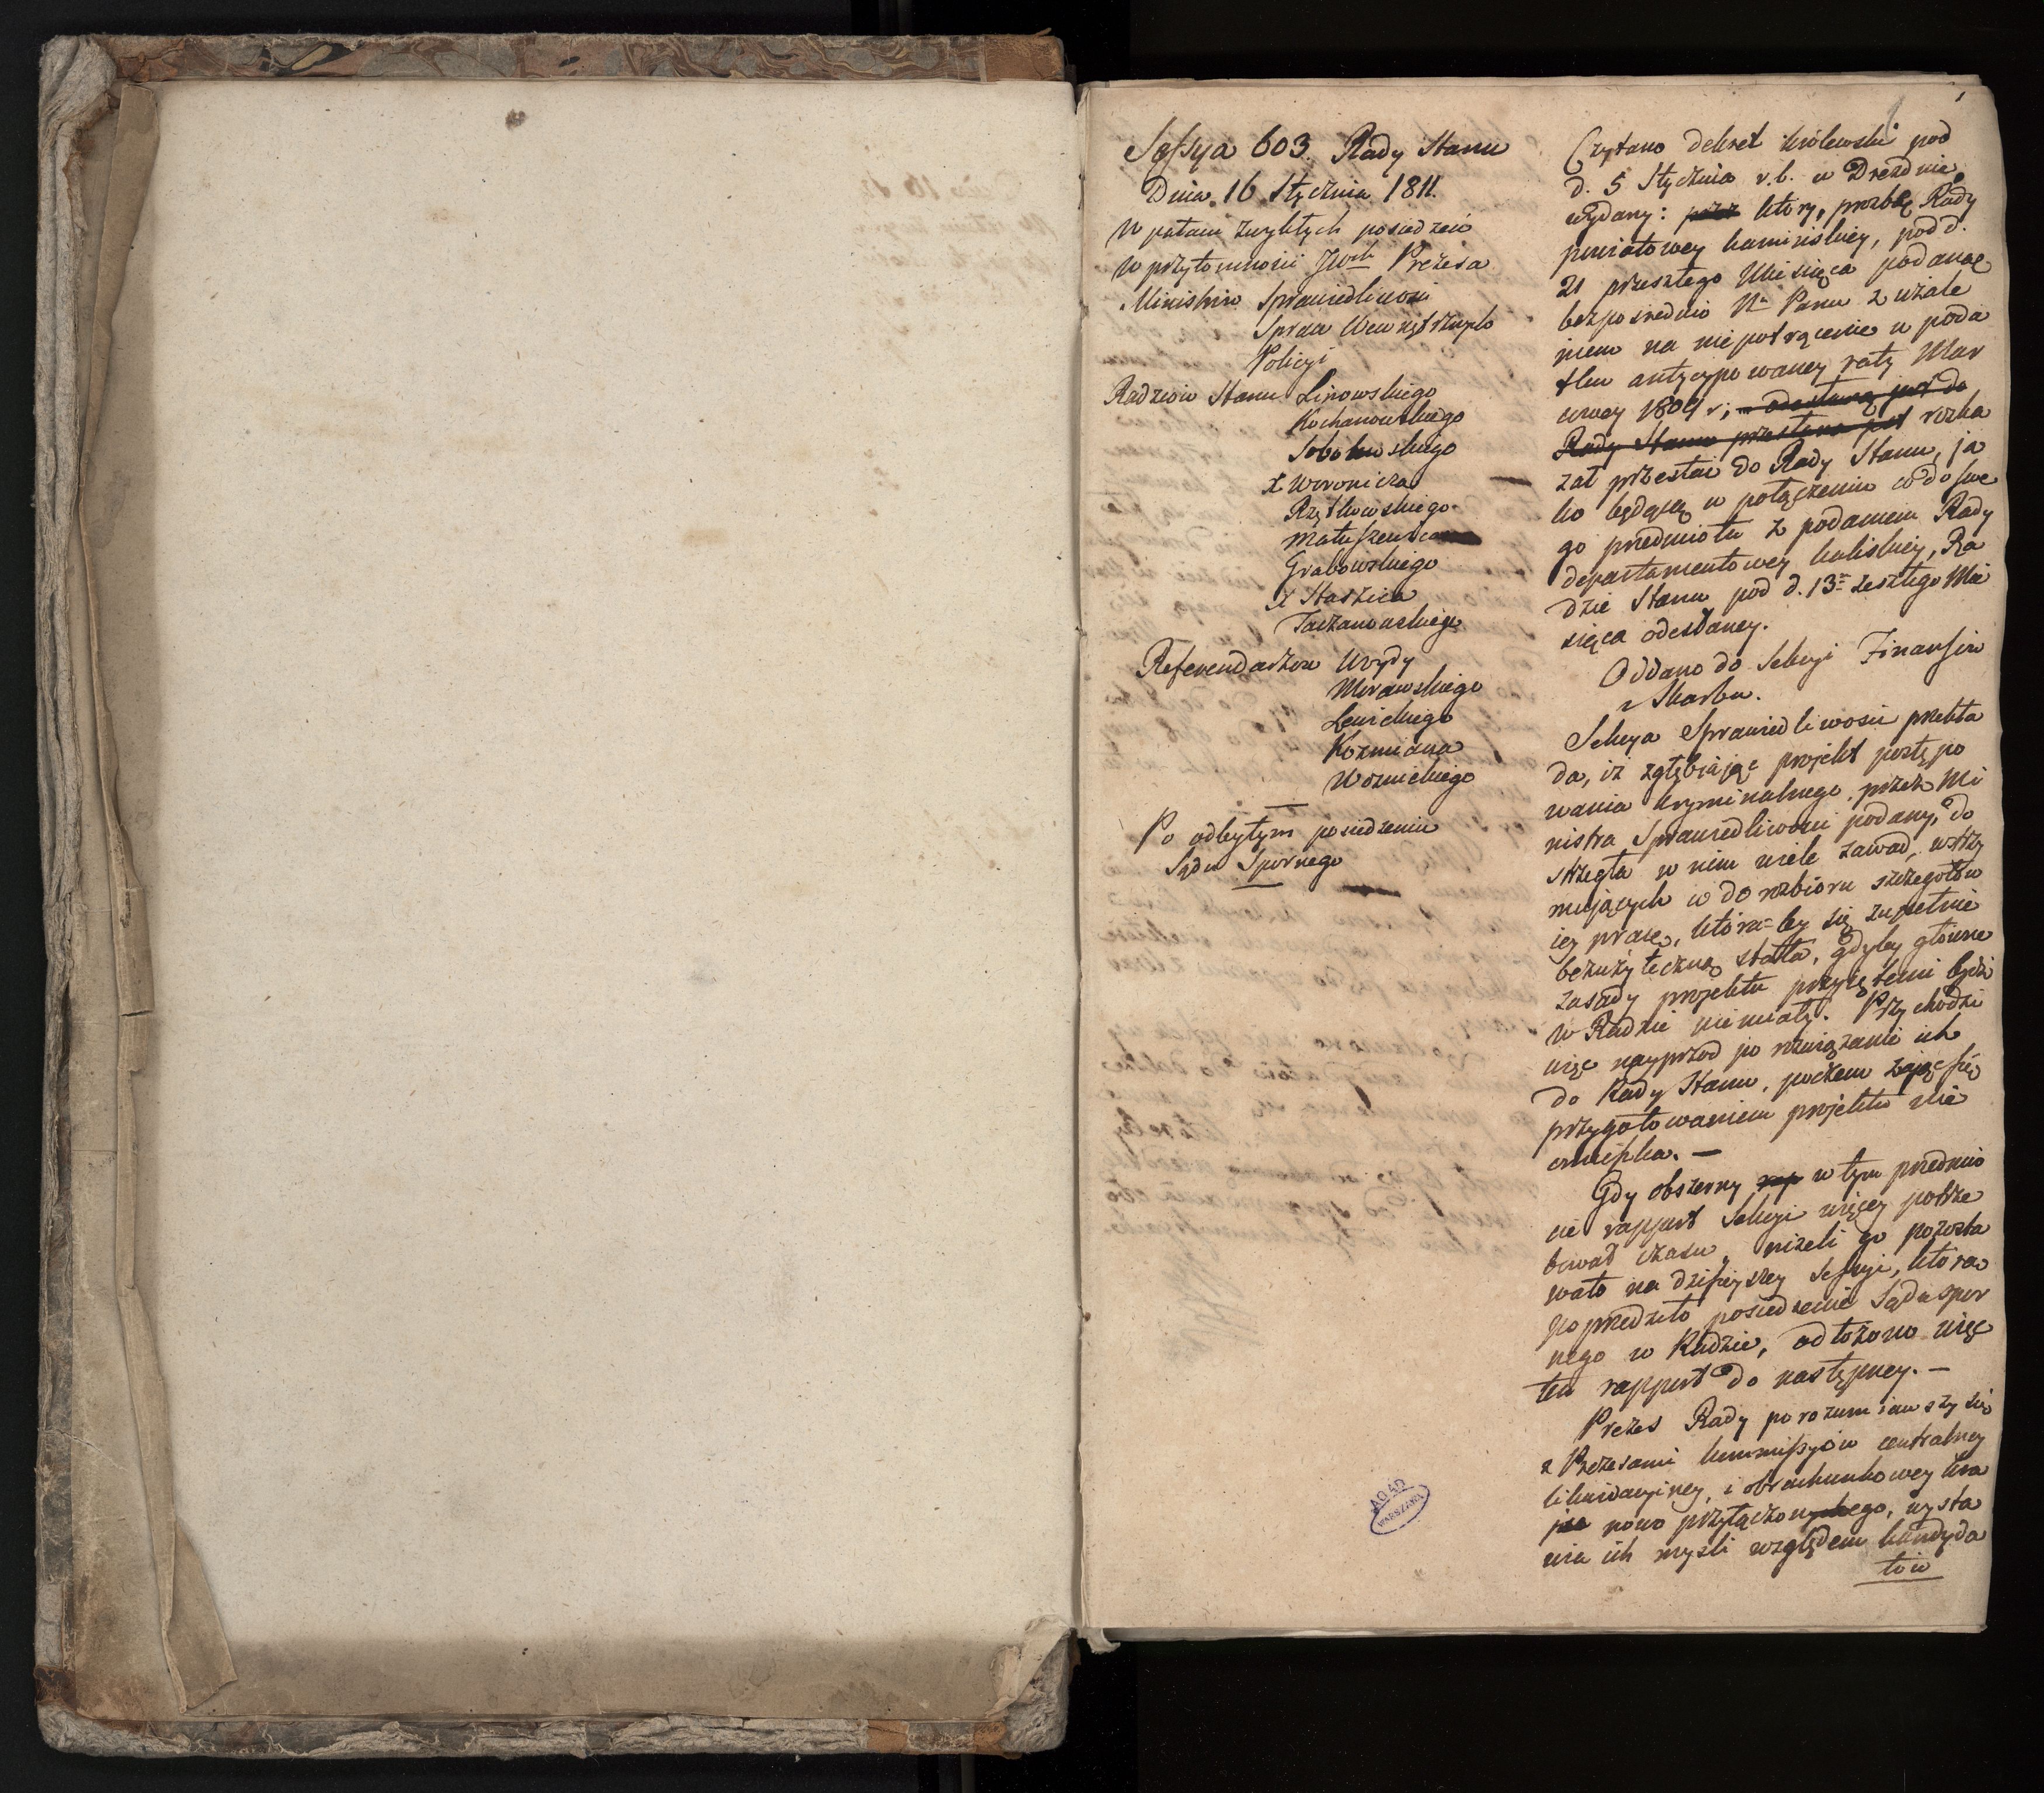 1
Sessya 603. Rady Stanu
Dnia 16 Stycznia 1811.
W pałacu zwykłych posiedzeń
W przytomności JWch Prezesa
Ministrów Sprawiedliwości
Spraw Wewnętrznych
Policyi
Radzców Stanu Linowskiego
Kochanowskiego
Sobolewskiego
X Woronicza
Rzętkowskiego
Matuszewica
Grabowskiego
X Staszica
Taczanowskiego
Referendarzów Uzydy
Morawskiego
Lewickiego
Kozmiana
Woznickiego
Po odbytym posiedzeniu
Sądu Spornego
Czytano dekret królewski pod
d. 5 Stycznia r.b. w Dreźnie
wydany: przez który, prozbę Rady
powiatowey kaminskiey, pod d.
21 przeszłego Miesiąca podaną
bezpośrednio Nu Panu z użale
niem na niepotrącenie w poda
tku antycypowaney raty Mar
cowey 1809 r; odesłaną jest do
Rady Stanu przesłana jest rozka
zał przesłać do Rady Stanu, ja
ko będącą w połączeniu co do swe
go przedmiotu z podaniem Rady
departamentowey kaliskiey, Ra
dzie Stanu pod d. 13= zeszłego Mie
siąca odesłaney.
Oddano do Sekcyi Finansów
i Skarbu.
Sekcya Sprawiedliwości przekła
da, iż zgłębiając projekt postępo
wania kryminalnego, przez Mi
nistra Sprawiedliwości podany, do
strzegła w nim wiele zawad, wstrzy
mujących w do rozbioru szczegółów
iey pracę, która=by się zupełnie
bezużyteczną stała, gdyby główne
zasady projektu przyiętemi bydź
w Radzie niemiały. Przychodzi
więc nayprzod po rozwiązanie ich
do Rady Stanu, poczem zająć się
przygotowaniem projektu nie
omieszka. —
Gdy obszerny rap w tym przedmio
cie rapport Sekcyi więcey potrze
bował czasu, niżeli go pozosta
wało na dzisieyszey Sessyi, którą
poprzedziło posiedzenie Sądu spor
nego w Radzie, odłożono więc
ten rapport do następney. —
Prezes Rady porozumiawszy się
z Prezesami kommissyów centralney
likwidacyiney, i obrachunkowey kra
ju nowo przyłączonego, wysta
wia ich myśli względem kandyda
tów
AGAD
WARSZAWA